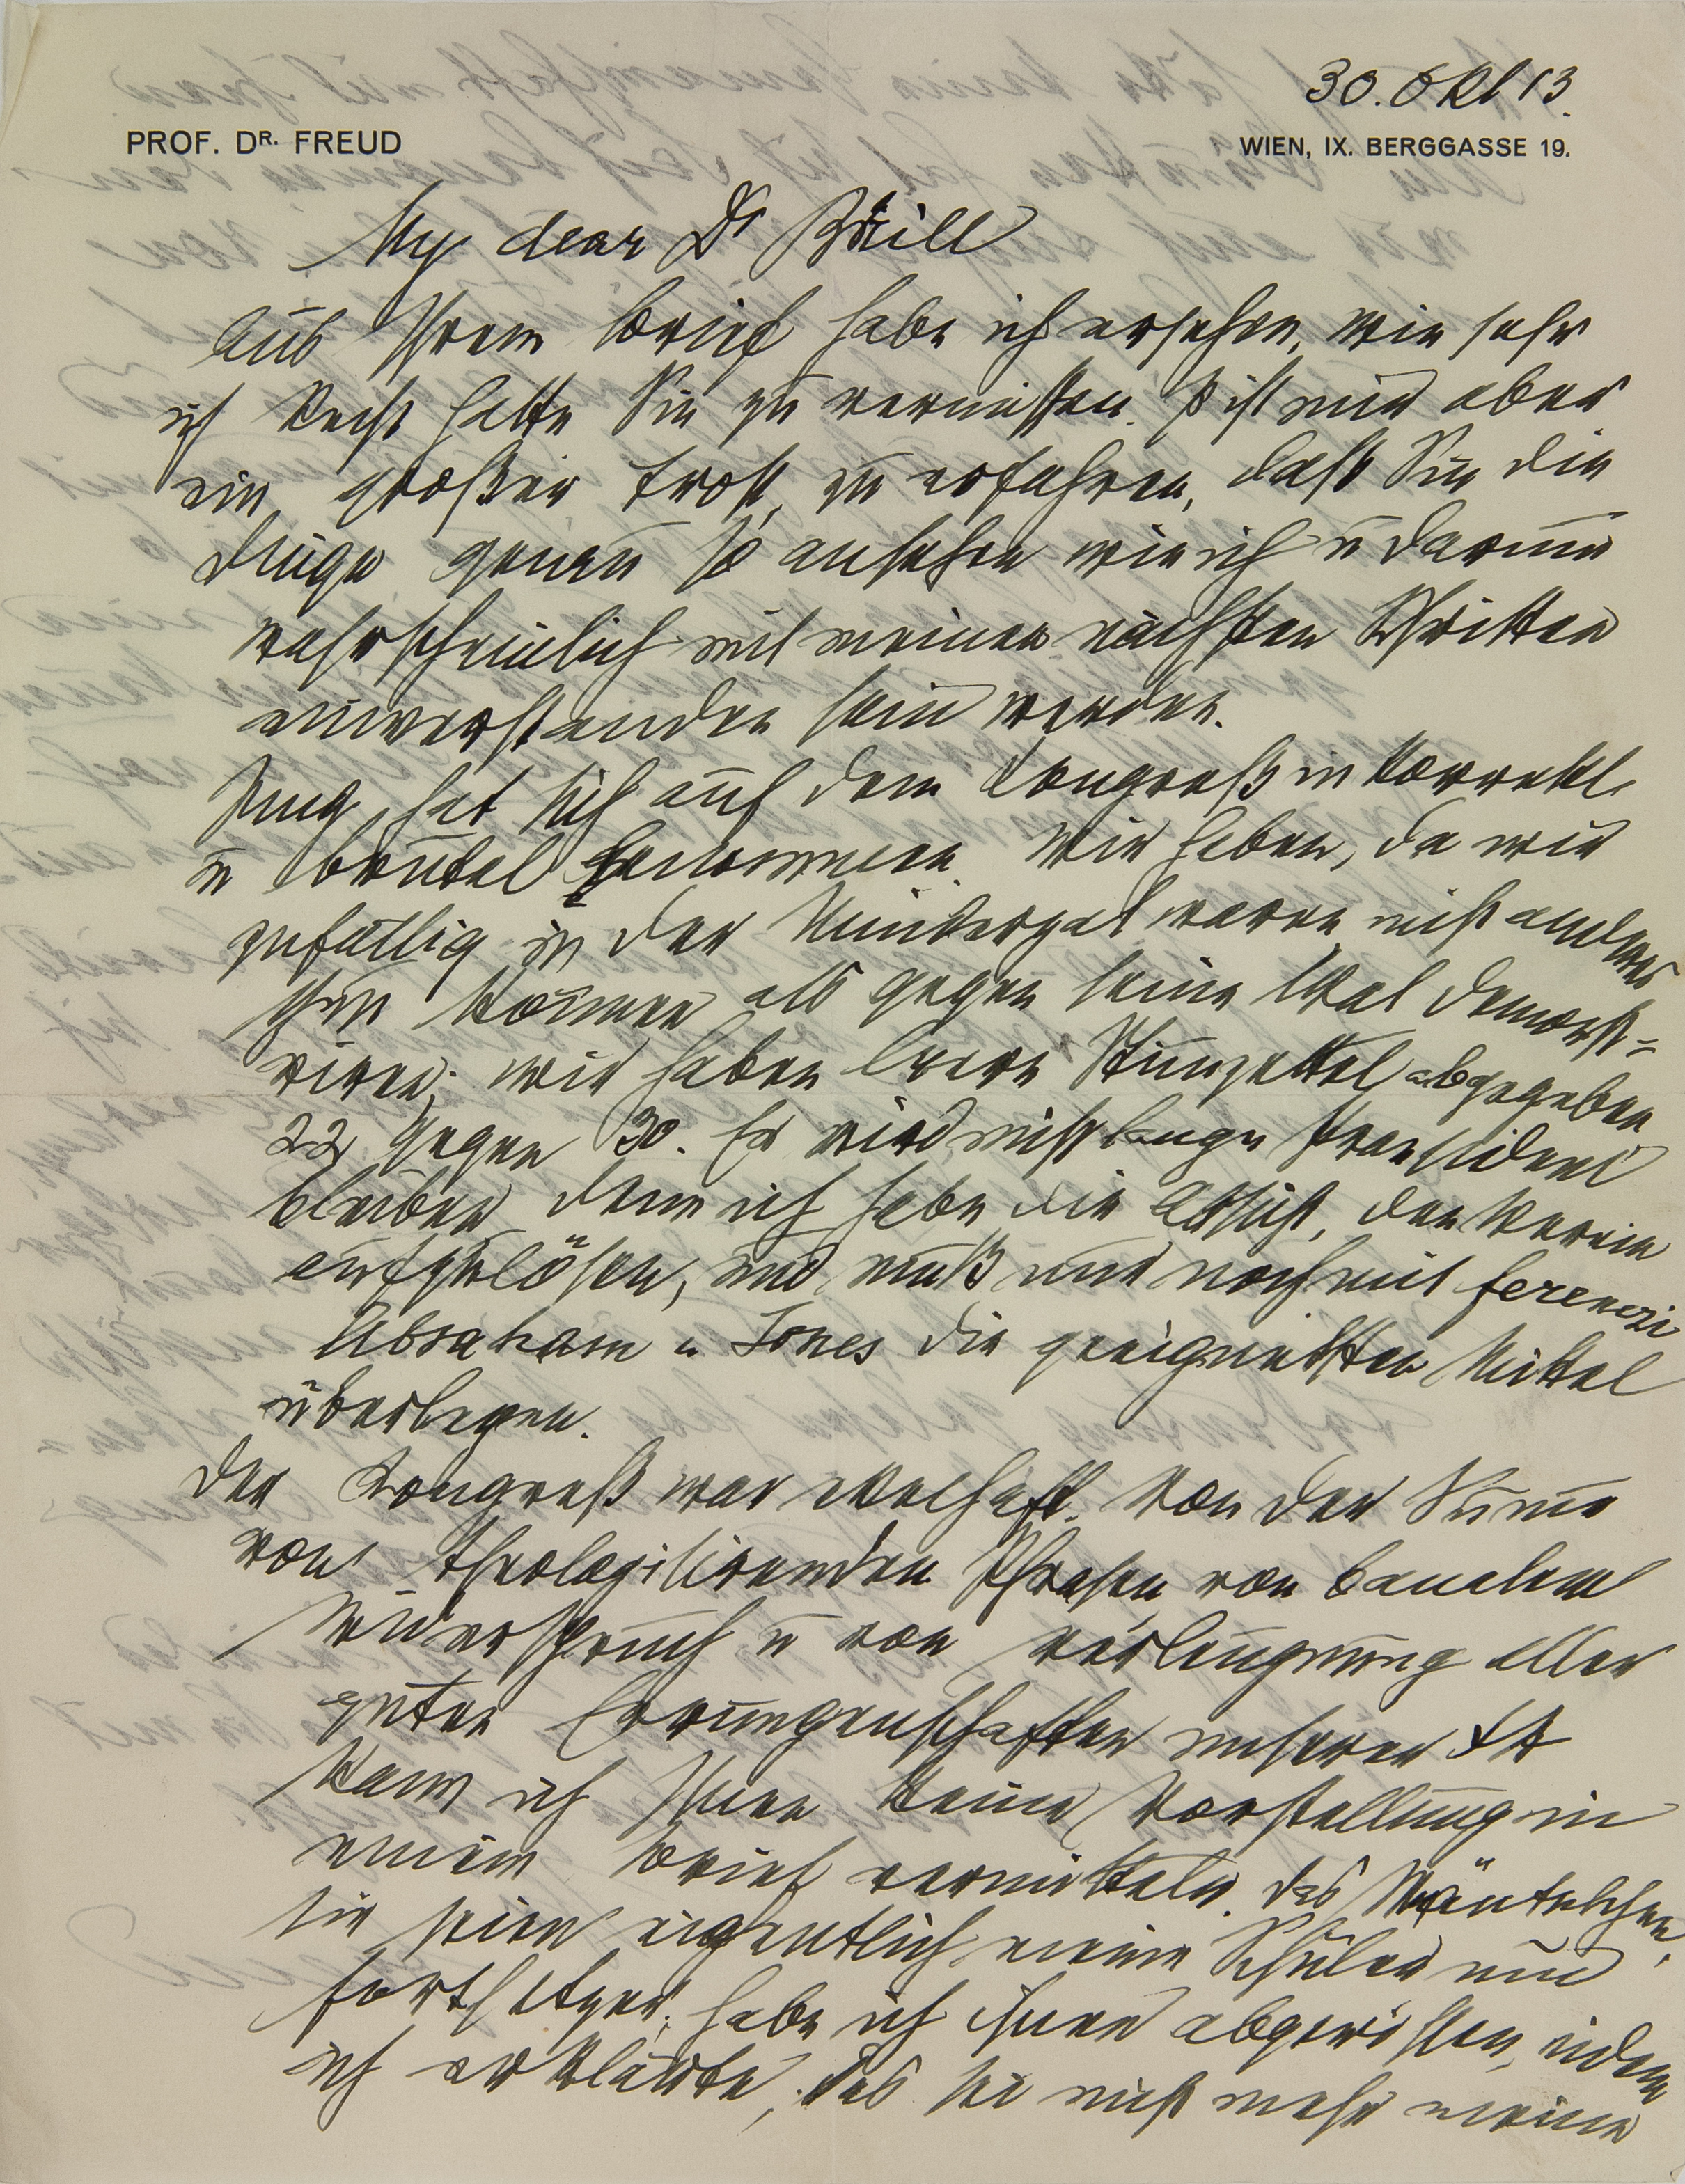 30. Okt 13
PROF. DR. FREUD
WIEN, IX. BERGGASSE 19.
My dear Dr Brill
Aus Ihrem Brief habe ich ersehen, wie sehr
ich Recht hatte Sie zu vermissen. Es ist mir aber
ein großer Trost, zu erfahren, daß Sie die
Dinge genau so ansehen wie ich u darum
wahrscheinlich mit meinen nächsten Schritten
einverstanden sein werden.
Jung hat sich auf dem Congreß inkorrekt
u brutal benommen. Wir haben, da wir
zufällig in der Minderzal waren nicht anderes
thun können als gegen seine Wal demonst=
riren; wir haben leere Stimzettel abgegeben
22 gegen 30. Er wird nicht lange Praesident
bleiben denn ich habe die Absicht, den Verein
aufzulösen, und muß nur noch mit Ferenczi
Abraham u Jones die geeignetsten Mittel
überlegen.
Der Congreß war ekelhaft. Von der Summe
von theologisirenden Phrasen von banalem
Widerspruch u von Verleugnung aller
guten Errungenschaften unserer ΨA
kann ich Ihnen keine Vorstellung in
einem Brief vermitteln. Das Mäntelchen,
sie seien eigentlich meine Schüler und
Fortsetzer, habe ich ihnen abgerissen, indem
ich erklärte, das sei nicht mehr meine